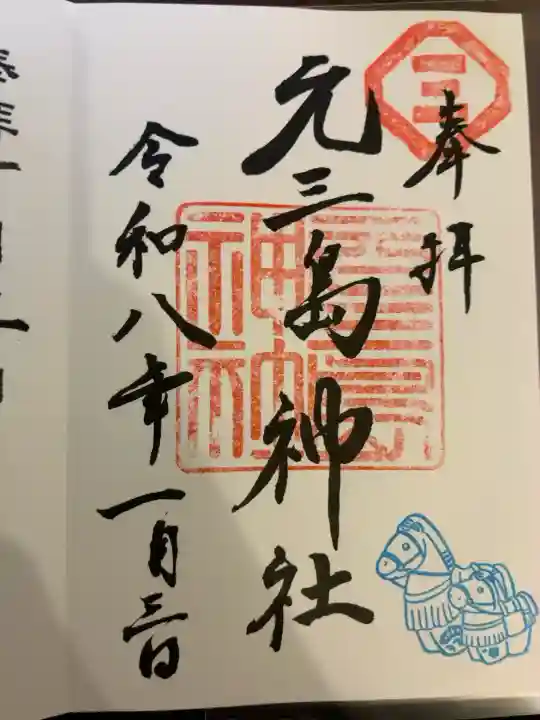 奉拝
三
元三島神社
三島神社
令和八年一月三日